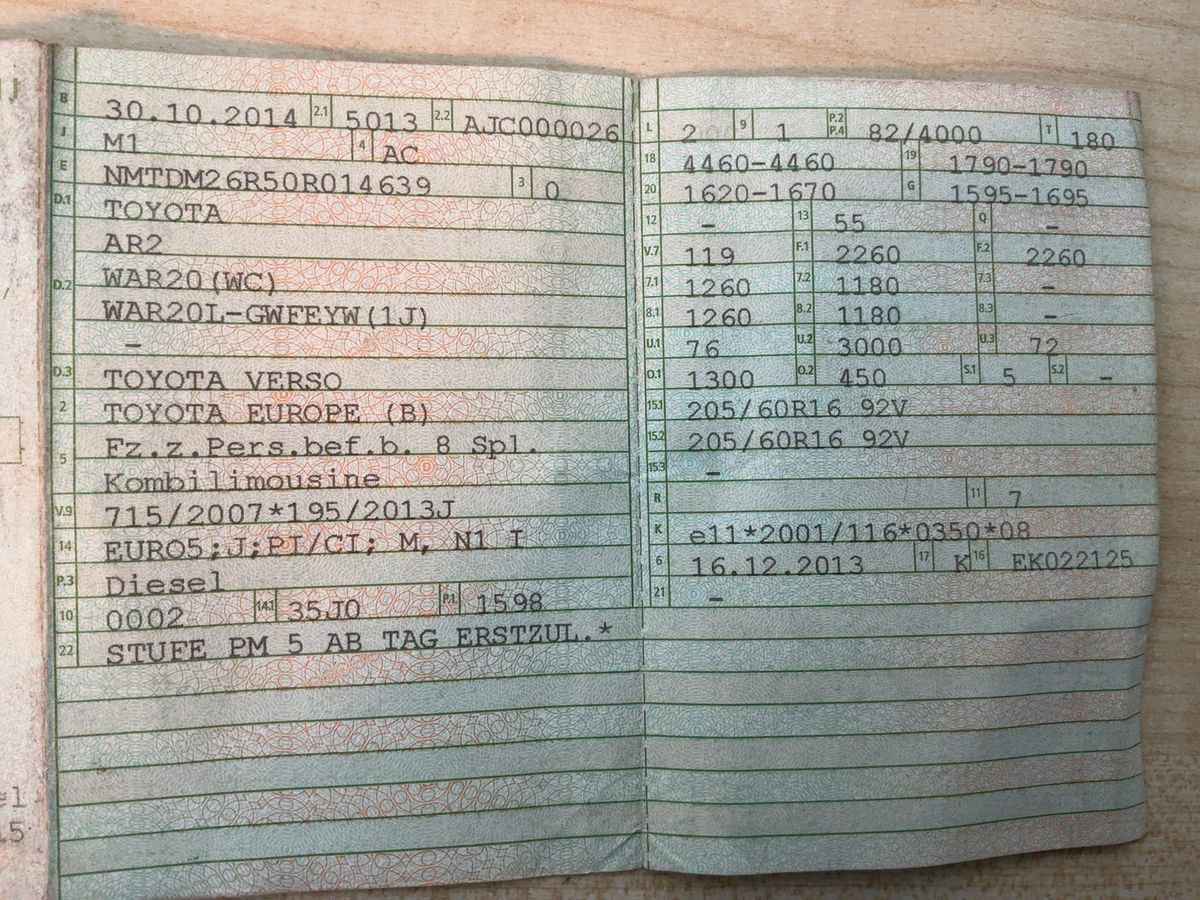 B 30.10.2014 2.1 5013 2.2 AJC000026
J M1 4 AC
E NMTDM26R50R014639 3 0
D.1 TOYOTA
AR2
D.2 WAR20(WC)
WAR20L-GWFEYW(1J)
-
D.3 TOYOTA VERSO
2 TOYOTA EUROPE (B)
5 Fz.z.Pers.bef.b. 8 Spl.
Kombilimousine
V.9 715/2007*195/2013J
14 EURO5;J;PI/CI; M, N1 I
P.3 Diesel
10 0002 14.1 35J0 P.1 1598
22 STUFE PM 5 AB TAG ERSTZUL.*
L 2 9 1 P.2 P.4 82/4000 T 180
18 4460-4460 19 1790-1790
20 1620-1670 G 1595-1695
12 - 13 55 Q -
V.7 119 F.1 2260 F.2 2260
7.1 1260 7.2 1180 7.3 -
8.1 1260 8.2 1180 8.3 -
U.1 76 U.2 3000 U.3 72
O.1 1300 O.2 450 S.1 5 S.2 -
15.1 205/60R16 92V
15.2 205/60R16 92V
15.3 -
R 11 7
K e11*2001/116*0350*08
6 16.12.2013 17 K 16 EK022125
21 -